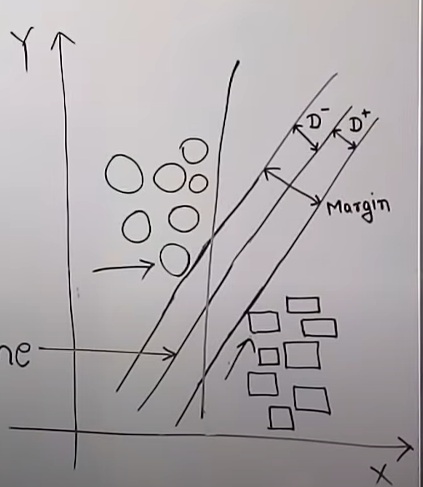 Y
D⁻
D⁺
Margin
ne
X